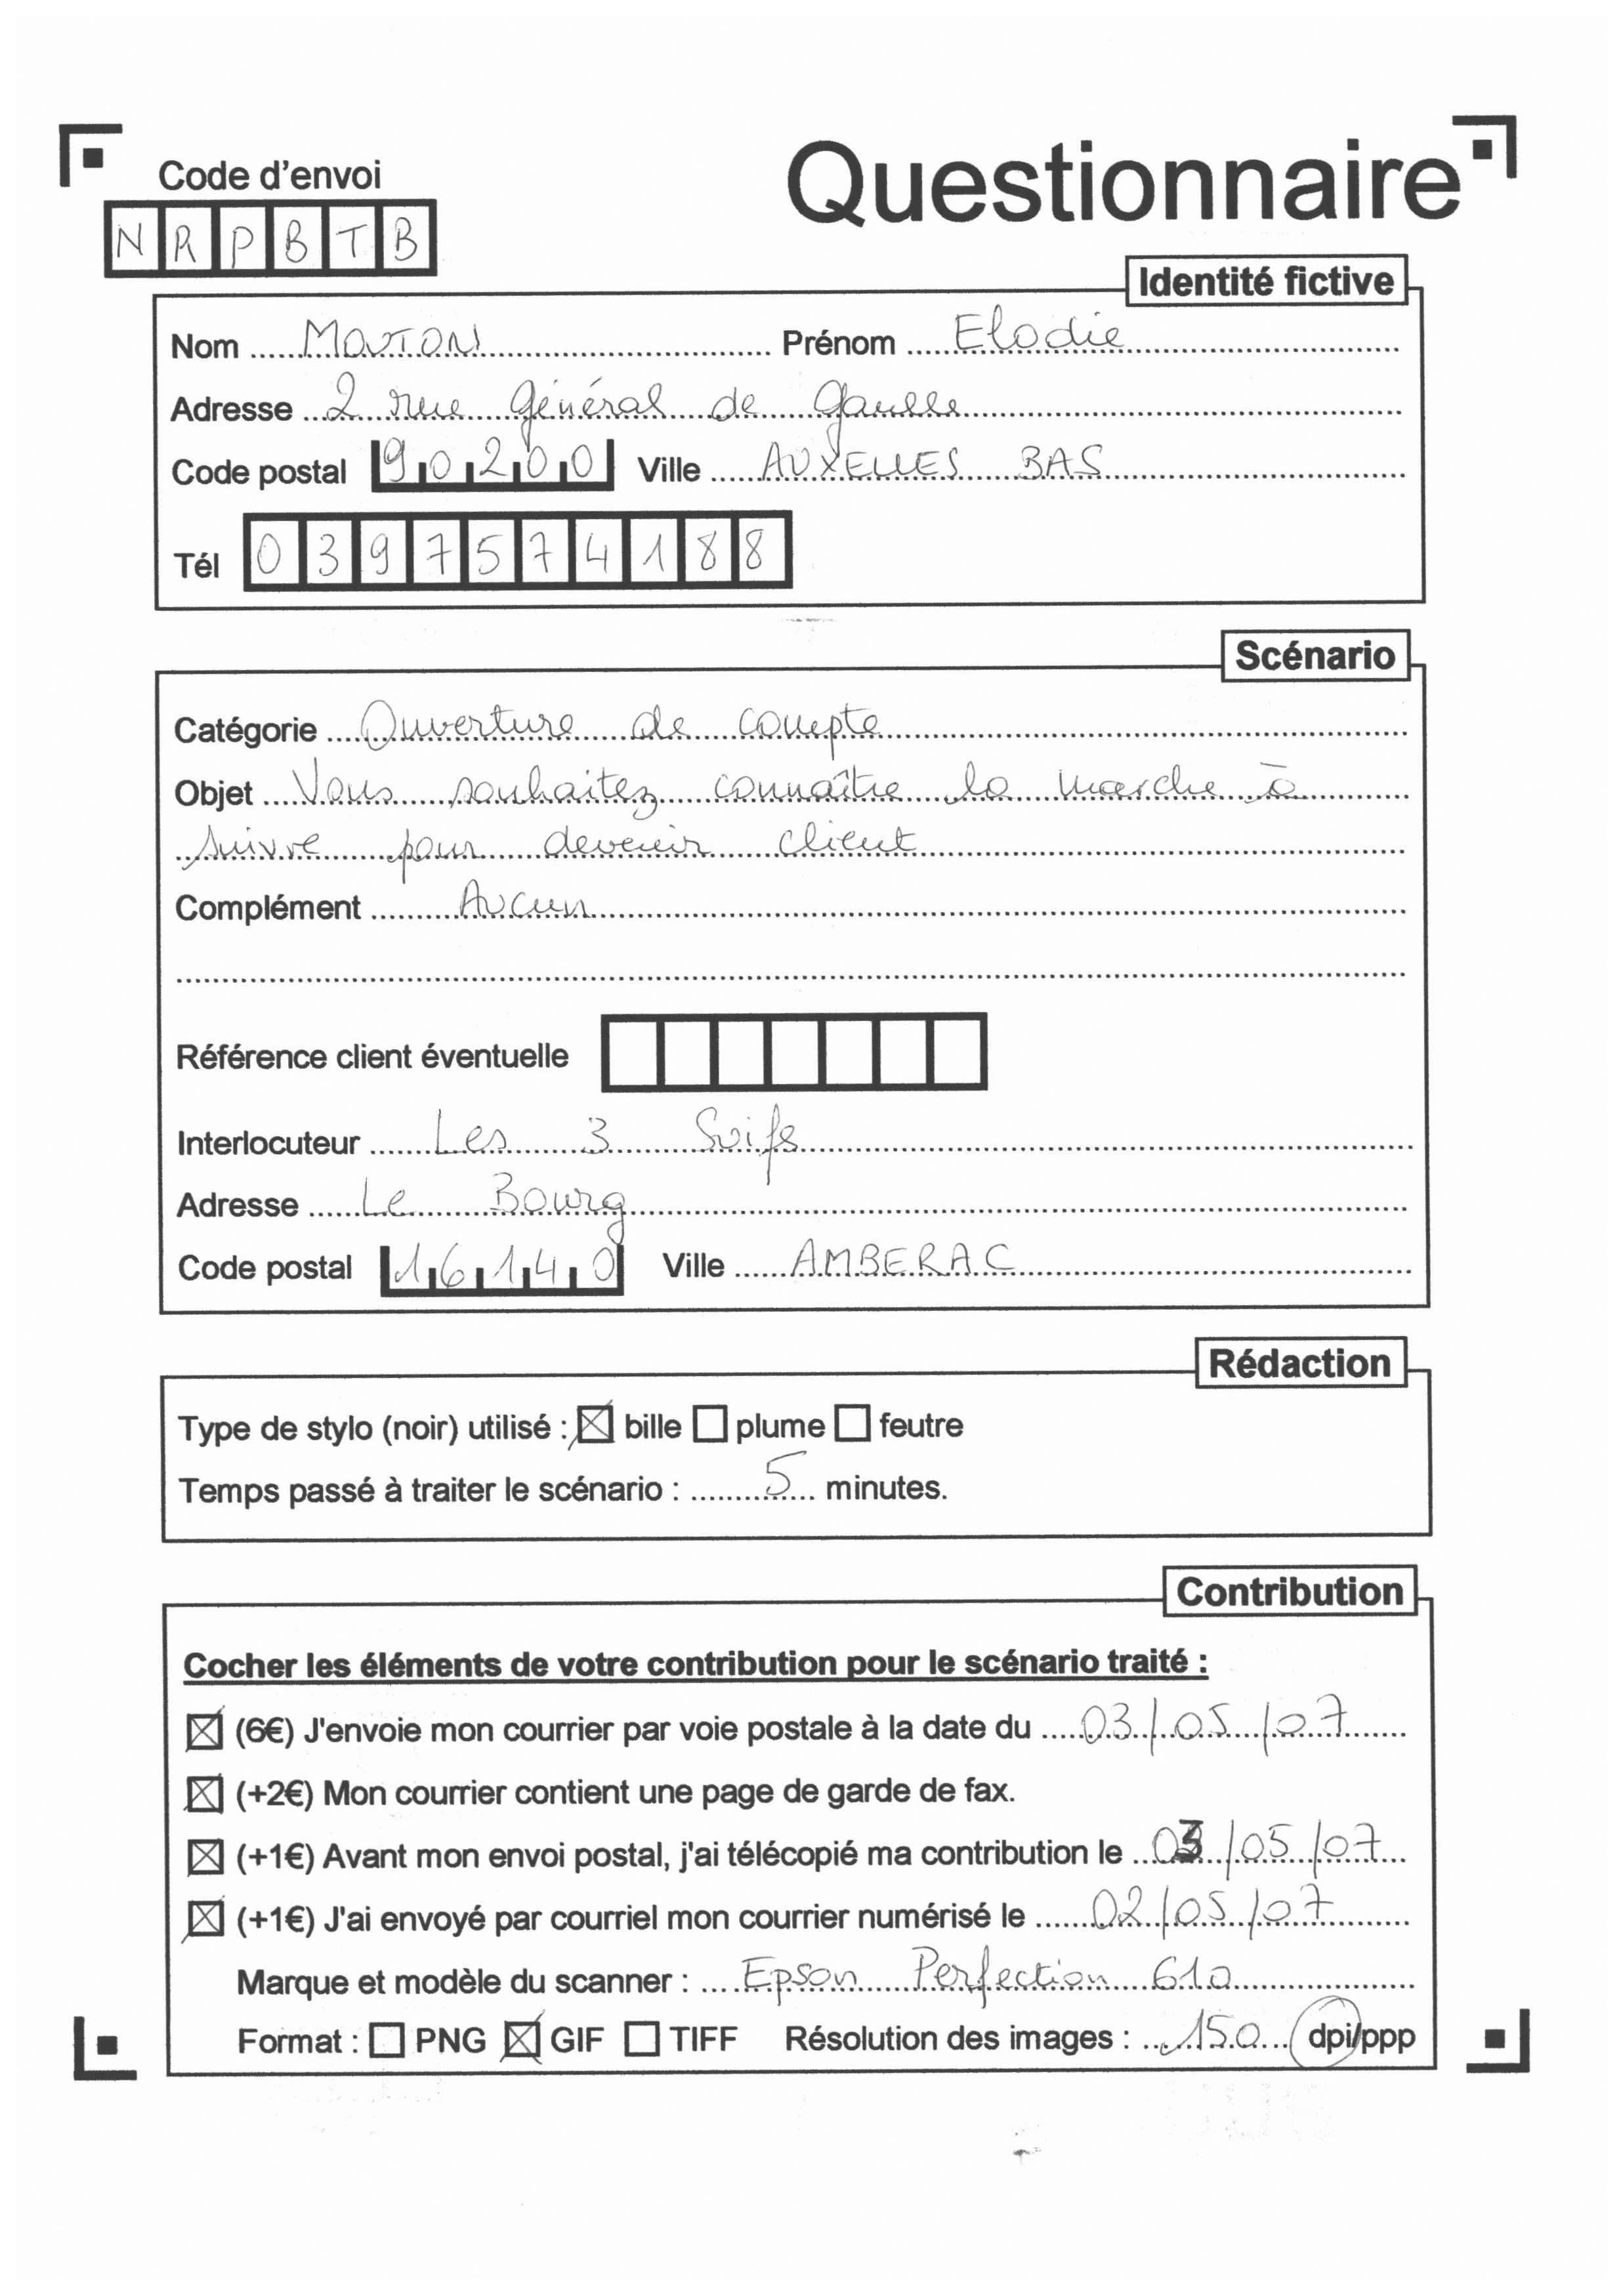 Code d'envoi
Questionnaire
N R P B T B
Identité fictive
Nom MOUTON Prénom Elodie
Adresse 2 rue général de gaulle
Code postal 90200 Ville AUXELLES BAS
Tél 0397574188
Scénario
Catégorie Ouverture de compte
Objet Vous souhaitez connaître la marche à
suivre pour devenir client
Complément Aucun
Référence client éventuelle
Interlocuteur Les 3 Suifs
Adresse Le Bourg
Code postal 16140 Ville AMBERAC
Rédaction
Type de stylo (noir) utilisé : ☒ bille ☐ plume ☐ feutre
Temps passé à traiter le scénario : 5 minutes.
Contribution
Cocher les éléments de votre contribution pour le scénario traité :
☒ (6€) J'envoie mon courrier par voie postale à la date du 03/05/07
☒ (+2€) Mon courrier contient une page de garde de fax.
☒ (+1€) Avant mon envoi postal, j'ai télécopié ma contribution le 03/05/07
☒ (+1€) J'ai envoyé par courriel mon courrier numérisé le 02/05/07
Marque et modèle du scanner : Epson Perfection 610
Format : ☐ PNG ☒ GIF ☐ TIFF Résolution des images : 150 dpi/ppp